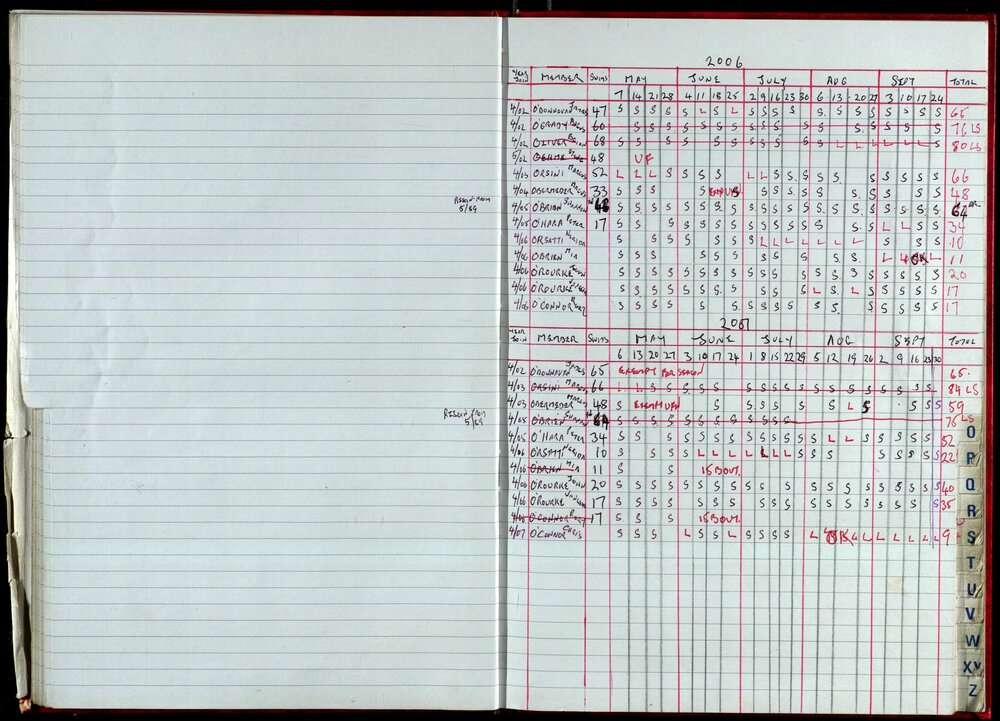 2006
YEAR JOIN MEMBER SWIMS MAY JUNE JULY AUG SEPT TOTAL
7 14 21 28 4 11 18 25 2 9 16 23 30 6 13 20 27 3 10 17 24
4/02 O'DONOVAN JAMES 47 S S S S S L S L S S S S S S S S S S S S 65
4/02 O'GRADY 60 S S S S S S S S S S S S S S S 76 LS
4/02 OLIVER 68 S S S S S S S S S S S S L L L L L L S 80 LS
5/02 48 UF
4/03 ORSINI MARCUS 52 L L L S S S S L L S S S S S S S S S S 66
4/04 OBERMEDER MARCUS 33 S S S S S S S S S S S S S S S 48
REJOIN FROM
5/89
4/05 O'BRIEN 48 S S S S S S S S S S S S S S S S S S S S S 64
4/05 O'HARA PETER 17 S S S S S S S S S S S S S S S L L S S 34
4/06 ORSATTI 0 S S S S S S S S L L L L L L S S S 10
4/06 O'BRIEN MIA S S S S S S S S S S S L L 11
4/06 O'ROURKE JOHN S S S S S S S S S S S S S S S S S S S S 20
4/06 O'ROURKE S S S S S S S S S S S S L S L S S S S S 17
4/06 O'CONNOR S S S S S S S S S S S S S S S S S 17
2007
YEAR JOIN MEMBER SWIMS MAY JUNE JULY AUG SEPT TOTAL
6 13 20 27 3 10 17 24 1 8 15 22 29 5 12 19 26 2 9 16 23 30
4/02 O'DONOVAN JAMES 65 EXEMPT PER SEASON 65
4/03 ORSINI MARCUS 66 L L S S S S S S S S S S S S S S S S S S S 84 LS
4/03 OBERMEDER MARCUS 48 S EXEMPT UF S S S S S S L S S S S 59
REJOIN FROM
5/89
4/05 O'BRIEN 64 S S S S S S S S S S S S 76 LS
4/05 O'HARA PETER 34 S S S S S S S S S S S S L L S S S S S S 52
4/06 ORSATTI 10 S S S S L L L L L L S S S S S S S S 22
4/06 O'BRIEN MIA 11 S S 15 BOUT.
4/06 O'ROURKE JOHN 20 S S S S S S S S S S S S S S S S S S S S S 40
4/06 O'ROURKE 17 S S S S S S S S S S S S S S S S S S S S 35
4/06 O'CONNOR 17 S S S 15 BOUT.
4/07 O'CONNOR CHRIS S S S L S S L S S S S L L L L L L L L 9
O
P
Q
R
S
T
U
V
W
XY
Z